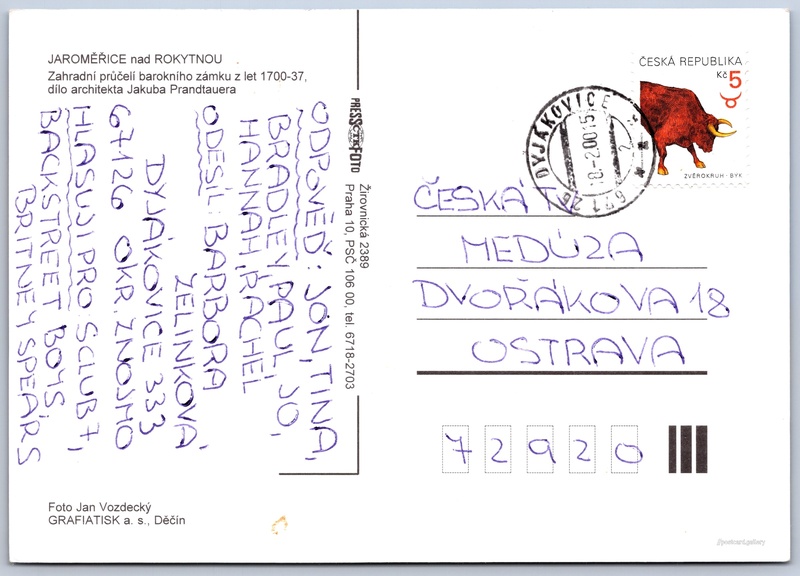 JAROMĚŘICE nad ROKYTNOU
Zahradní průčelí barokního zámku z let 1700-37,
dílo architekta Jakuba Prandtauera
ODPOVĚĎ: JON, TINA,
BRADLEY, PAUL, JO,
HANNAH, RACHEL
ODESÍL: BARBORA
ZELINKOVÁ
DYJÁKOVICE 333
67126 OKR. ZNOJMO
HLASUJI PRO: SCLUB 7,
BACKSTREET BOYS,
BRITNEY SPEARS
Foto Jan Vozdecký
GRAFIATISK a. s., Děčín
PRESSFOTO
Žirovnická 2389
Praha 10, PSČ 106 00, tel. 6718-2703
ČESKÁ REPUBLIKA
Kč 5
ZVĚROKRUH - BÝK
DYJÁKOVICE
671 26
ČESKÁ
MEDÚZA
DVOŘÁKOVA 18
OSTRAVA
72920
postcard.gallery